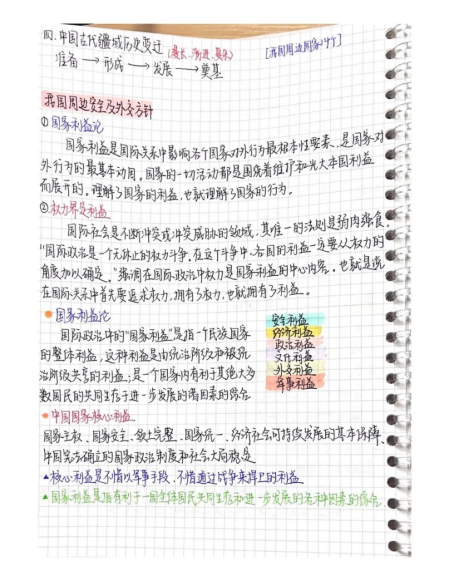 四.中国古代疆域历史变迁 (漫长、渐进、复杂) [我国周边国家14个]
准备→形成→发展→奠基
我国周边安全及外交方针
①国家利益论
国家利益是国际关系中影响各个国家对外行为最根本性要素、是国家对
外行为的最基本动因。国家的一切活动都是围绕着维护和光大本国利益
而展开的。理解了国家的利益,也就理解了国家的行为。
②权力界定利益
国际社会是不断冲突或冲突威胁的领域,其唯一的法则是弱肉强食。
"国际政治是一个无休止的权力斗争,在这个斗争中,各国的利益一定要从权力的
角度加以确定。"强调在国际政治中权力是国家利益的中心内容。也就是说
在国际关系中首先要追求权力,拥有了权力,也就拥有了利益。
国家利益论
国际政治中的"国家利益"是指一个民族国家
的整体利益,这种利益是由统治阶级和被统
治阶级共享的利益;是一个国家内有利于其绝大多
数国民的共同生存与进一步发展的诸因素的综合.
安全利益
经济利益
政治利益
文化利益
外交利益
军事利益
中国国家核心利益
国家主权、国家安全、领土完整、国家统一、经济社会可持续发展的基本保障、
中国宪法确立的国家政治制度和社会大局稳定
▲核心利益是不惜以军事手段、不惜通过战争来捍卫的利益
▲国家利益是指有利于一国全体国民共同生存和进一步发展的各种因素的综合.